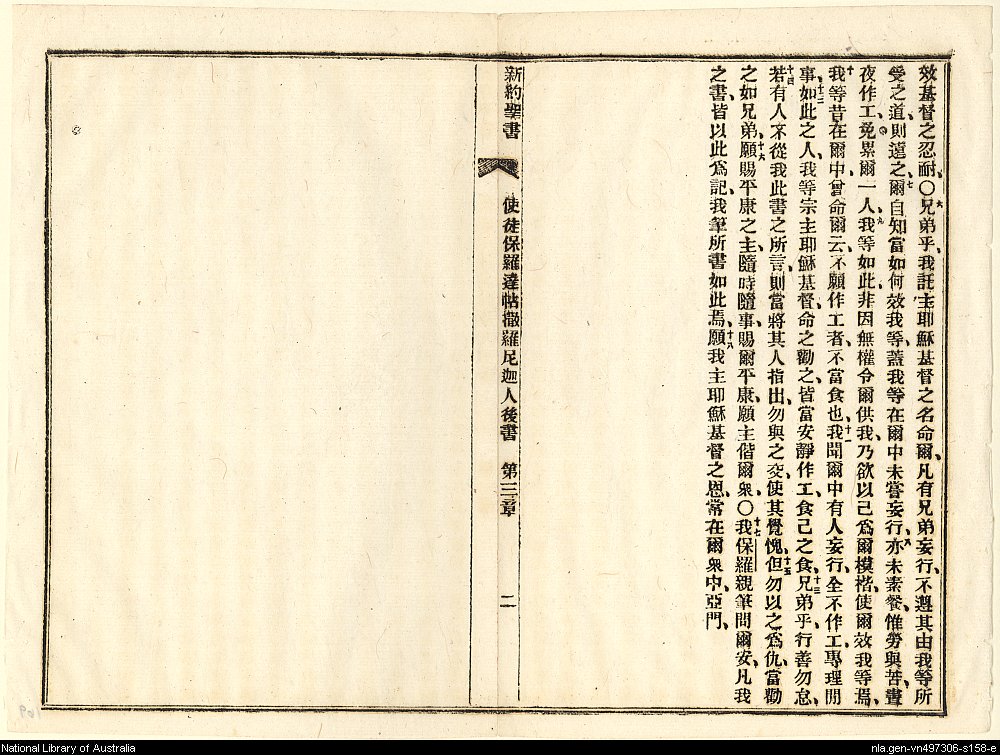 效基督之忍耐、〇六兄弟乎、我託主耶穌基督之名命爾、凡有兄弟妄行、不遵其由我等所
受之道、則遠之、七爾自知當如何效我等、蓋我等在爾中未嘗妄行、八亦未素餐、惟勞與苦、晝
夜作工、免累爾一人、九我等如此、非因無權令爾供我、乃欲以己爲爾模楷、使爾效我等焉、
十我等昔在爾中、曾命爾云、不願作工者、不當食也、十一我聞爾中有人妄行、全不作工、專理閒
事、十二如此之人、我等宗主耶穌基督命之勸之、皆當安靜作工、食己之食、十三兄弟乎、行善勿怠、
十四若有人不從我此書之所言、則當將其人指出、勿與之交、使其覺愧、十五但勿以之爲仇、當勸
之如兄弟、十六願賜平康之主、隨時隨事、賜爾平康、願主偕爾衆、〇十七我保羅親筆問爾安、凡我
之書、皆以此爲記、我筆所書如此焉、十八願我主耶穌基督之恩、常在爾衆中、亞門、
新約聖書 使徒保羅達帖撒羅尼迦人後書 第三章 二
National Library of Australia
nla.gen-vn497306-s158-e